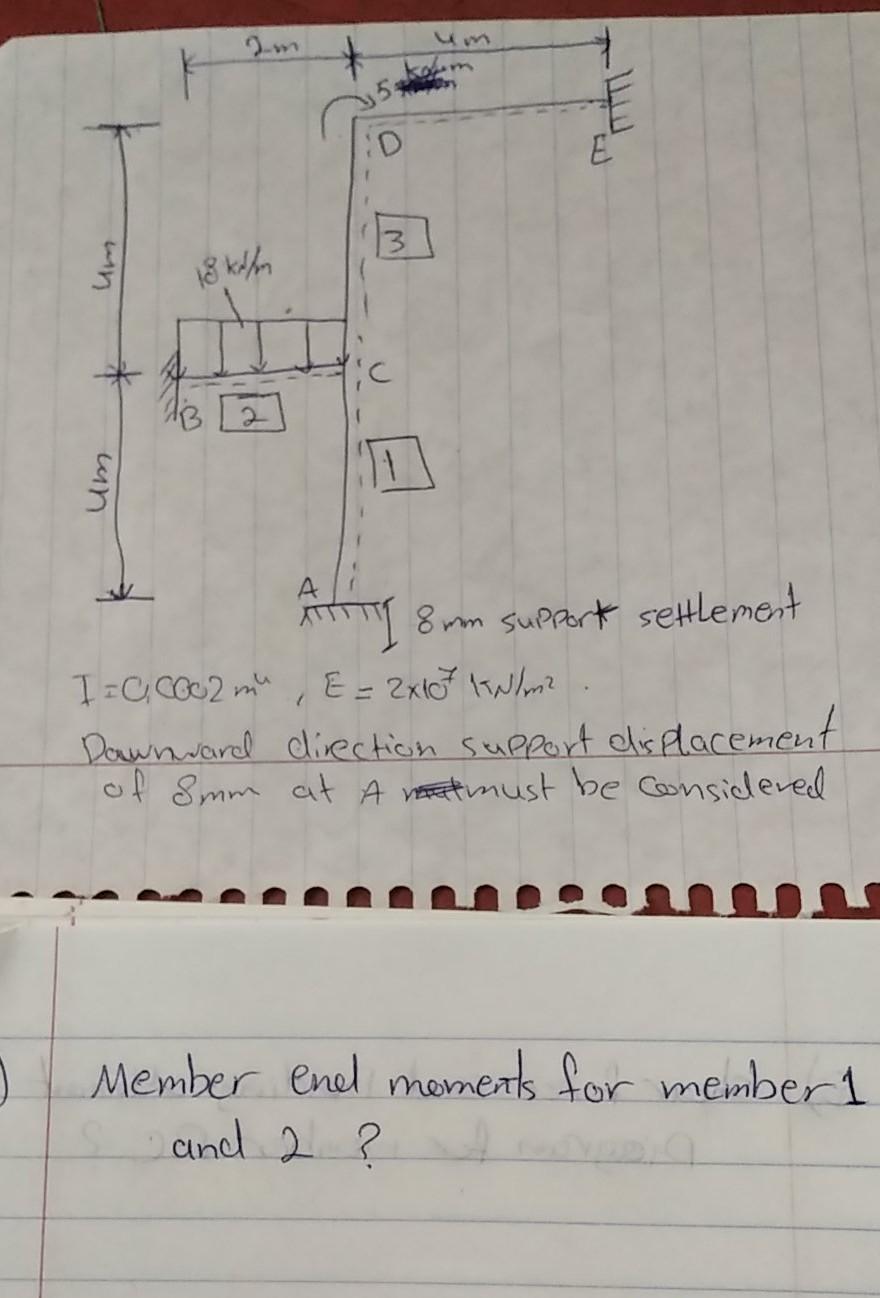 2m
4m
5
D
E
3
4m
18 kN/m
C
B
2
4m
1
A
8mm support settlement
I = 0,0002 m⁴ , E = 2x10⁷ kN/m² .
Downward direction support displacement
of 8mm at A must be considered
) Member end moments for member 1
and 2 ?